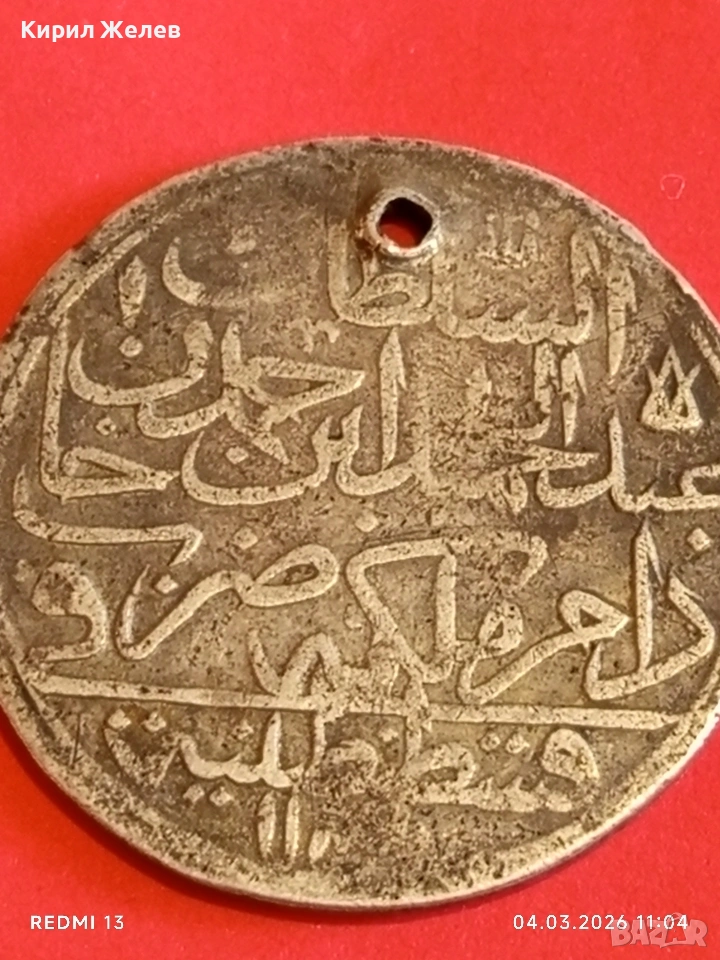 Кирил Желев
السلطان
عبد الحميد ابن احمد خان
دام ملكه ضرب فى
قسطنطنية
REDMI 13
04.03.2026 11:04
BAZAR